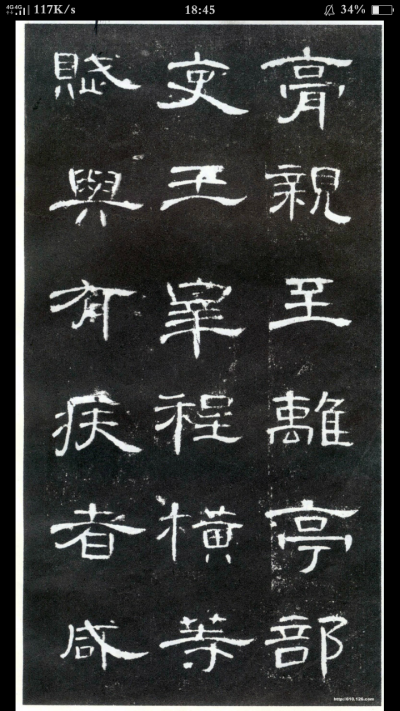 117K/s 18:45 34%
膏親至離亭部
吏王宰程橫等
賦與有疾者咸